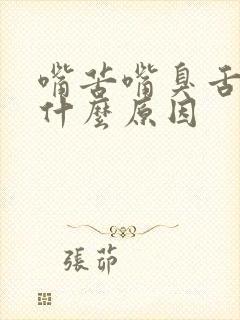 嘴苦嘴臭舌
什麼原因
張茆